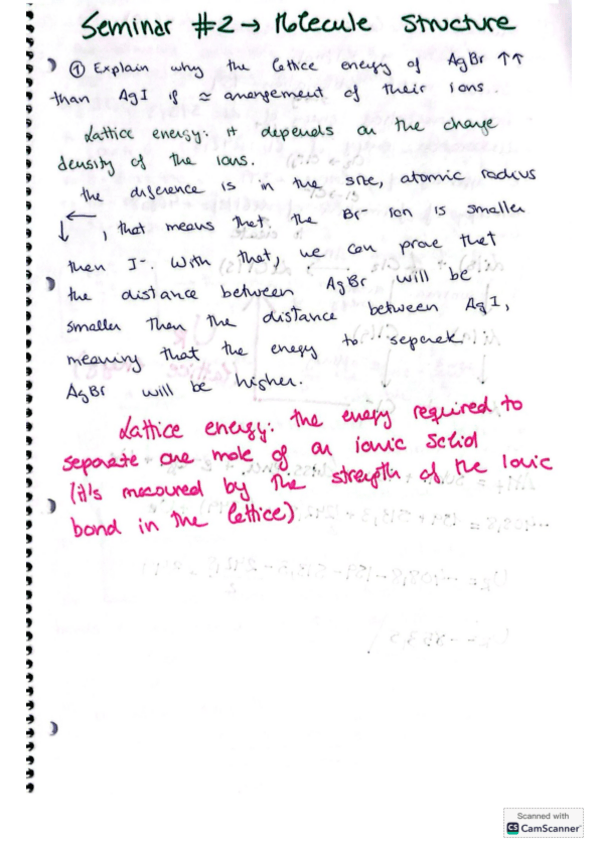 Seminar #2 → Molecule Structure
① Explain why the lattice energy of AgBr ↑↑
than AgI if ≃ arrangement of their ions.
Lattice energy: it depends on the charge
density of the ions.
the diference is in the size, atomic radius
← ↓, that means that: the Br- ion is smaller
then I-. With that, we can prove that
the distance between AgBr will be
smaller then the distance between AgI,
meaning that the energy to seperate
AgBr will be higher.
Lattice energy: the energy required to
separate one mole of an ionic solid
(it's mecoured by the strength of the ionic
bond in the lettice)
Scanned with
CS CamScanner